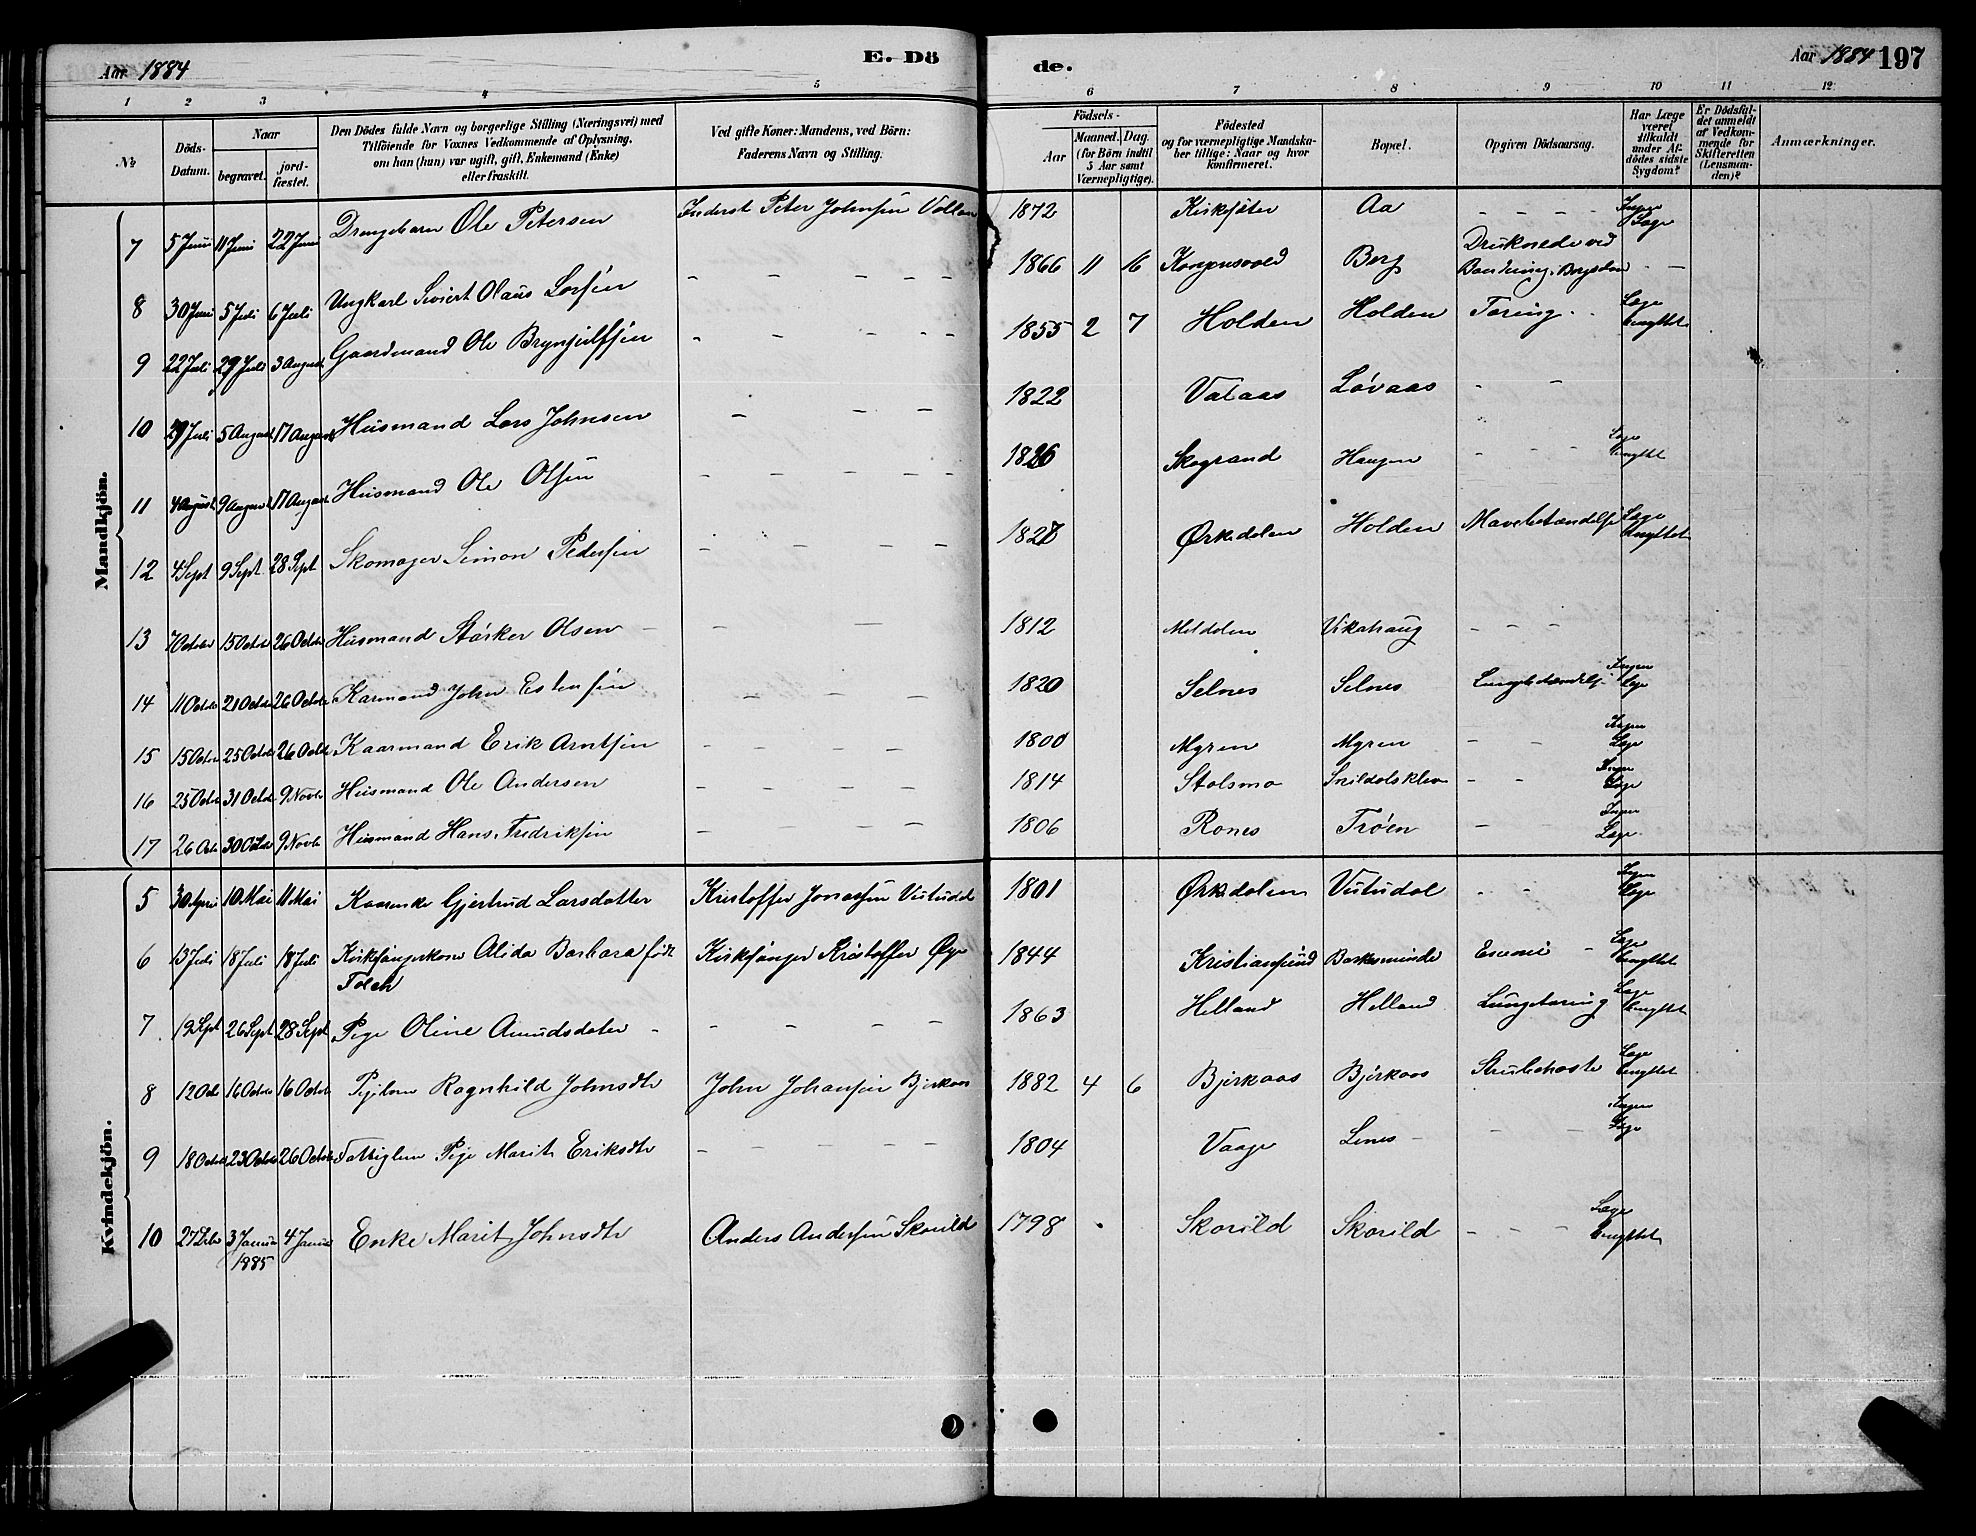 Aar 1884
E. Dö
de.
Aar 1884 197
1 2 3 4 5 6 7 8 9 10 11 12
№
Döds-
Datum.
Naar
begravet.
jord-
fæstet.
Den Dödes fulde Navn og borgerlige Stilling (Næringsvei) med
Tilföiende for Voxnes Vedkommende af Oplysning,
om han (hun) var ugift, gift, Enkemand (Enke)
eller fraskilt.
Ved gifte Koner: Mandens, ved Börn:
Faderens Navn og Stilling.
Födsels-
Aar
Maaned. Dag.
(for Börn indtil
5 Aar samt
Værnepligtige).
Födested
og for værnepligtige Mandska-
ber tillige: Naar og hvor
konfirmeret.
Bopæl.
Opgiven Dödsaarsag.
Har Læge
været
tilkaldt
under Af-
dödes sidste
Sygdom?
Er Dödsfal-
det anmeldt
af Vedkom-
mende for
Skifteretten
(Lensman-
den)?
Anmærkninger.
Mandkjön.
7 5 Juni 11 Juni 22 Juni Drengebarn Ole Petersen Inderst Peter Johnsen 1872 Aa – – – – Ingen Læge
8 30 Juni 5 Juli 6 Juli Ungkarl Sivert Olaus Larsen – – – – 1866 11 16 Berg Druknede ved – –
9 22 Juli 29 Juli 3 August Gaardmand Ole Brynjulfsen – – – – 1855 2 7 Holden Holden Tæring Læge benyttet
10 29 Juli 5 August 17 August Husmand Lars Johnsen – – – 1822 Vataas Løvaas – –
11 4 August 9 August 17 August Husmand Ole Olsen – – – – 1826 Skogrand Haugen – – – Læge benyttet
12 4 Sept 9 Sept 28 Sept Skomager Simon Pedersen – – – – 1827 Ørkedalen Holden Mavebetændelse Læge benyttet
13 7 Octob 15 Octob 26 Octob Husmand Størker Olsen – – – 1812 Meldalen Vikahaug – – –
14 11 Octob 21 Octob 26 Octob Karmand John Estensen – – – 1820 Selnes Selnes Lungebetændelse Ingen Læge
15 15 Octob 25 Octob 26 Octb Kaarmand Erik Arntsen – – – – 1800 Myren Myren – – Ingen Læge
16 25 Octob 31 Octob 9 Novb Husmand Ole Andersen – – – – 1814 Stolsmo Snildalsklev – – Ingen Læge
17 26 Octb 30 Octb 9 Novb Husmand Hans Fredriksen – – – – 1806 Rønes Trøen – – Ingen Læge
Kvindekjön.
5 30 April 10 Mai 11 Mai Kaarenke Gjertrud Larsdatter Kristoffer Jonassen 1801 Ørkdalen – – Ingen Læge
6 13 Juli 18 Juli 18 Juli Kirkesangerkone Alida Barbara født Kirkesanger Kristoffer Øye 1844 Kristiansund Læge benyttet
7 19 Sept 26 Sept 28 Sept Pige Oline Amundsdater – – – – – 1863 Helland Helland Lungetæring Læge benyttet
8 12 Oct 16 Octob 16 Octob Pigebarn Ragnhild Johnsdtr John Johansen Bjerkaas 1882 4 6 Bjerkaas Bjerkaas Strubehoste Læge benyttet
9 18 Octob 23 Octob 26 Octob Fattiglem Pige Marit Eriksdtr – – – – – 1804 Vaage Lines – – – Ingen Læge
10 27 Decbr 3 Januar 1885 4 Januar Enke Marit Johnsdtr Anders Andersen Skorild 1798 Skorild Skorild – – – Læge benyttet